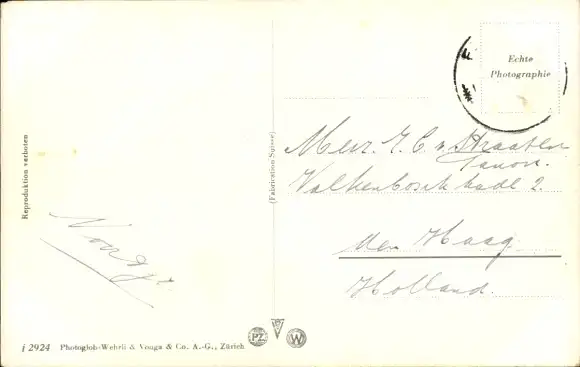 Echte
Photographie
Reproduktion verboten
(Fabrication Suisse)
Mevr. J. C. v. Straaten
Valkenbosch kade 2
den Haag
Holland.
i 2924 Photoglob-Wehrli & Vouga & Co. A.-G., Zürich
PZ
W